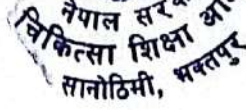 नेपाल सर
चिकित्सा शिक्षा आ
सानोठिमी, भक्तपुर